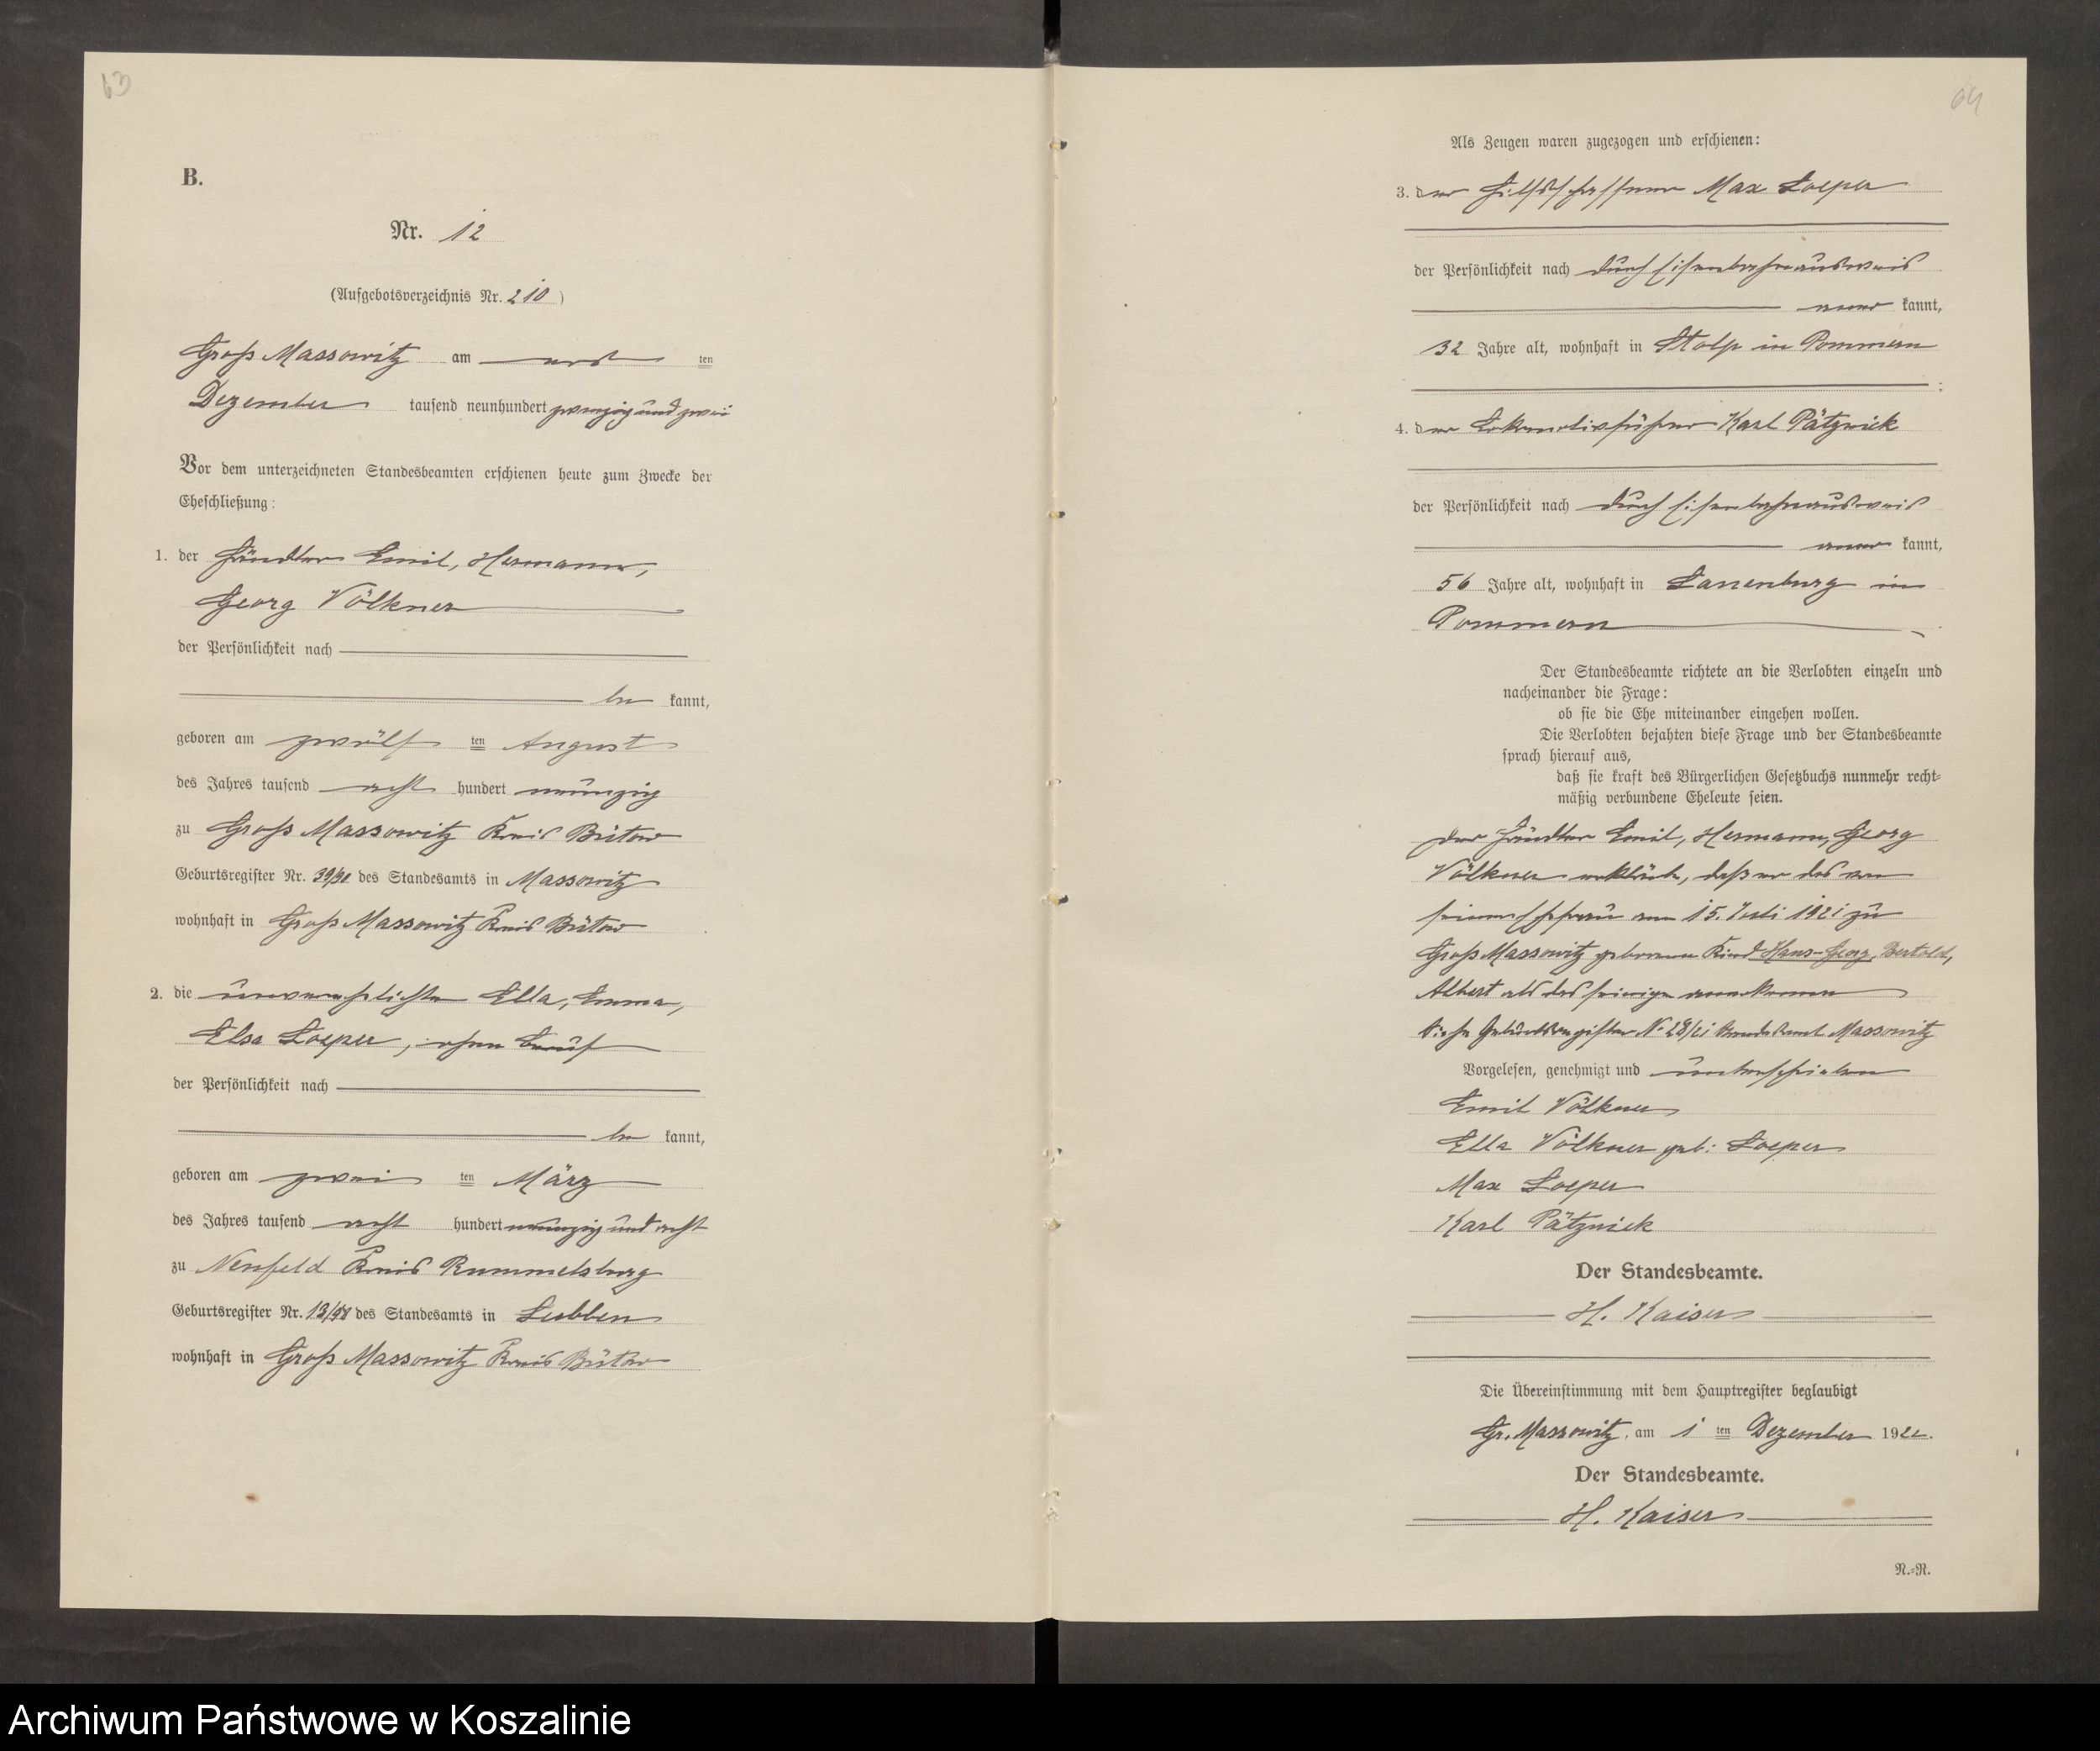 63
B.
Nr. 12
(Aufgebotsverzeichnis Nr. 210)
Groß Massowitz am erst ten
Dezember tausend neunhundert zwanzig und zwei
Vor dem unterzeichneten Standesbeamten erschienen heute zum Zwecke der
Eheschließung:
1. der Händler Emil, Hermann,
Georg Völkner
der Persönlichkeit nach
be kannt,
geboren am zwölf ten August
des Jahres tausend acht hundert neunzig
zu Groß Massowitz Kreis Bütow
Geburtsregister Nr. 39/90 des Standesamts in Massowitz
wohnhaft in Groß Massowitz Kreis Bütow
2. die unverehelichte Ella, Emma,
Elsa Loeper, ohne Beruf
der Persönlichkeit nach
be kannt,
geboren am zwei ten März
des Jahres tausend acht hundert neunzig und acht
zu Neufeld Kreis Rummelsburg
Geburtsregister Nr. 13/98 des Standesamts in Lubben
wohnhaft in Groß Massowitz Kreis Bütow
64
Als Zeugen waren zugezogen und erschienen:
3. der Hilfsschaffner Max Loeper
der Persönlichkeit nach durch Eisenbahnausweis
aner kannt,
32 Jahre alt, wohnhaft in Stolp in Pommern
;
4. der Lokomotivführer Karl Pätznick
der Persönlichkeit nach durch Eisenbahnausweis
aner kannt,
56 Jahre alt, wohnhaft in Lauenburg in
Pommern
Der Standesbeamte richtete an die Verlobten einzeln und
nacheinander die Frage:
ob sie die Ehe miteinander eingehen wollen.
Die Verlobten bejahten diese Frage und der Standesbeamte
sprach hierauf aus,
daß sie kraft des Bürgerlichen Gesetzbuchs nunmehr recht-
mäßig verbundene Eheleute seien.
Der Händler Emil, Hermann, Georg
Völkner erklärte, daß er das von
seiner Ehefrau am 15. Juli 1921 zu
Groß Massowitz geborene Kind Hans-Georg, Bertold,
Albert als das seinige anerkenne
Siehe Geburtsregister No 28/21 Standesamt Massowitz
Vorgelesen, genehmigt und unterschrieben
Emil Völkner
Ella Völkner geb: Loeper
Max Loeper
Karl Pätznick
Der Standesbeamte.
H. Kaiser
Die Übereinstimmung mit dem Hauptregister beglaubigt
Gr. Massowitz, am 1 ten Dezember 1922.
Der Standesbeamte.
H. Kaiser
N.-R.
Archiwum Państwowe w Koszalinie